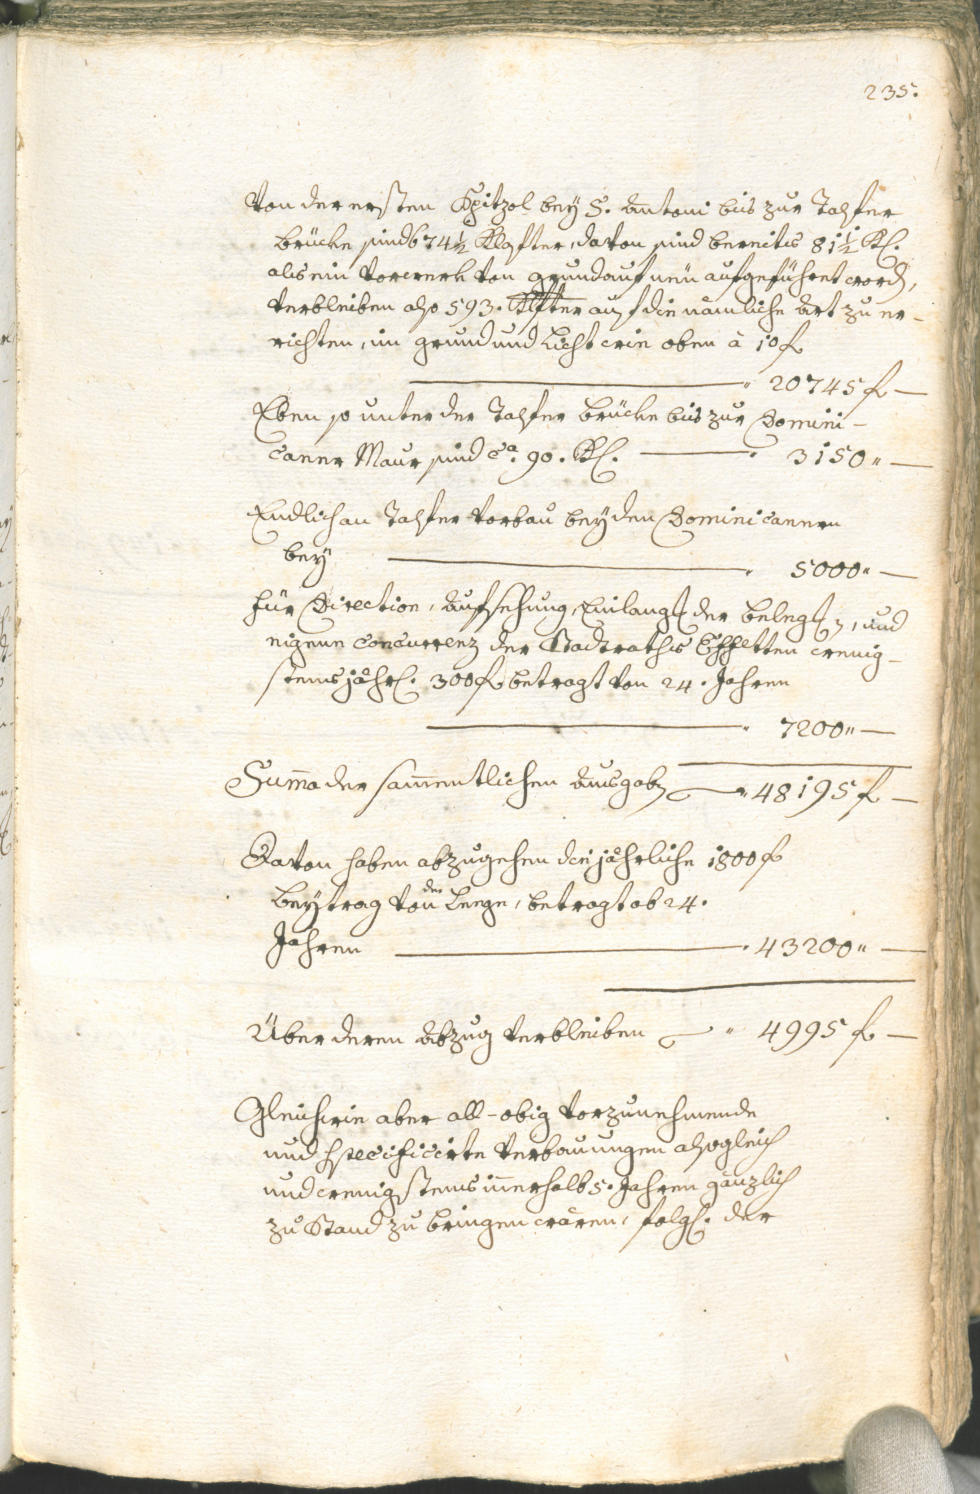 235.
Von der ersten Spitzol bey S. Antoni bis zur Talfer
brücke sind 674½ Klafter, davon sind bereits 81½ Kl.
als ein Vorwerk von grund auf neü aufgeführet word.,
verbleiben also 593. Klafter auf die nämliche Art zu er-
richten, im grund und Licht wie oben à 10 f
20745 f —
Eben so unter der Talfer brücke bis zur Domini-
caner Maur sind ca. 90. Kl. — 3150 " —
Endlich an Talfer Vorbau bey den Dominicanern
bey — 5000 " —
für Direction, Aufsehung, der belegt, und
eigene Concurrenz der Stadtraths Effetten wenig-
stens jährl. 300 f, betragt von 24. Jahren
7200 " —
Summa der sammentlichen Ausgaben — " 48195 f —
Davon haben abzugehen die jährliche 1800 f
beytrag von der Leege, betragt ab 24.
Jahren — 43200 " —
Über deren Abzug verbleiben — " 4995 f —
Gleichwie aber all-obig vorzunehmende
und specificirte Verbauungen alsogleich
und wenigstens innerhalb 5. Jahren gänzlich
zu Stand zu bringen wären, folgl. der